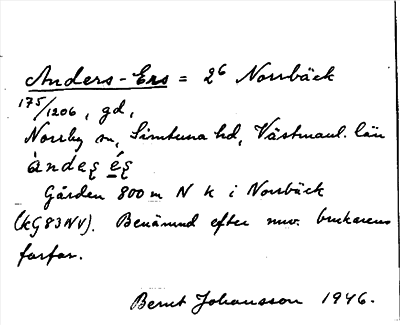 Anders-Ers = 2⁶ Norrbäck
175/1206, gd,
Norrby sn, Simtuna hd, Västmanl. län
àndeʂ éʂ
Gården 800 m N k i Norrbäck
(kG83NV). Benämnd efter nuv. brukarens
farfar.
Bernt Johansson 1946.